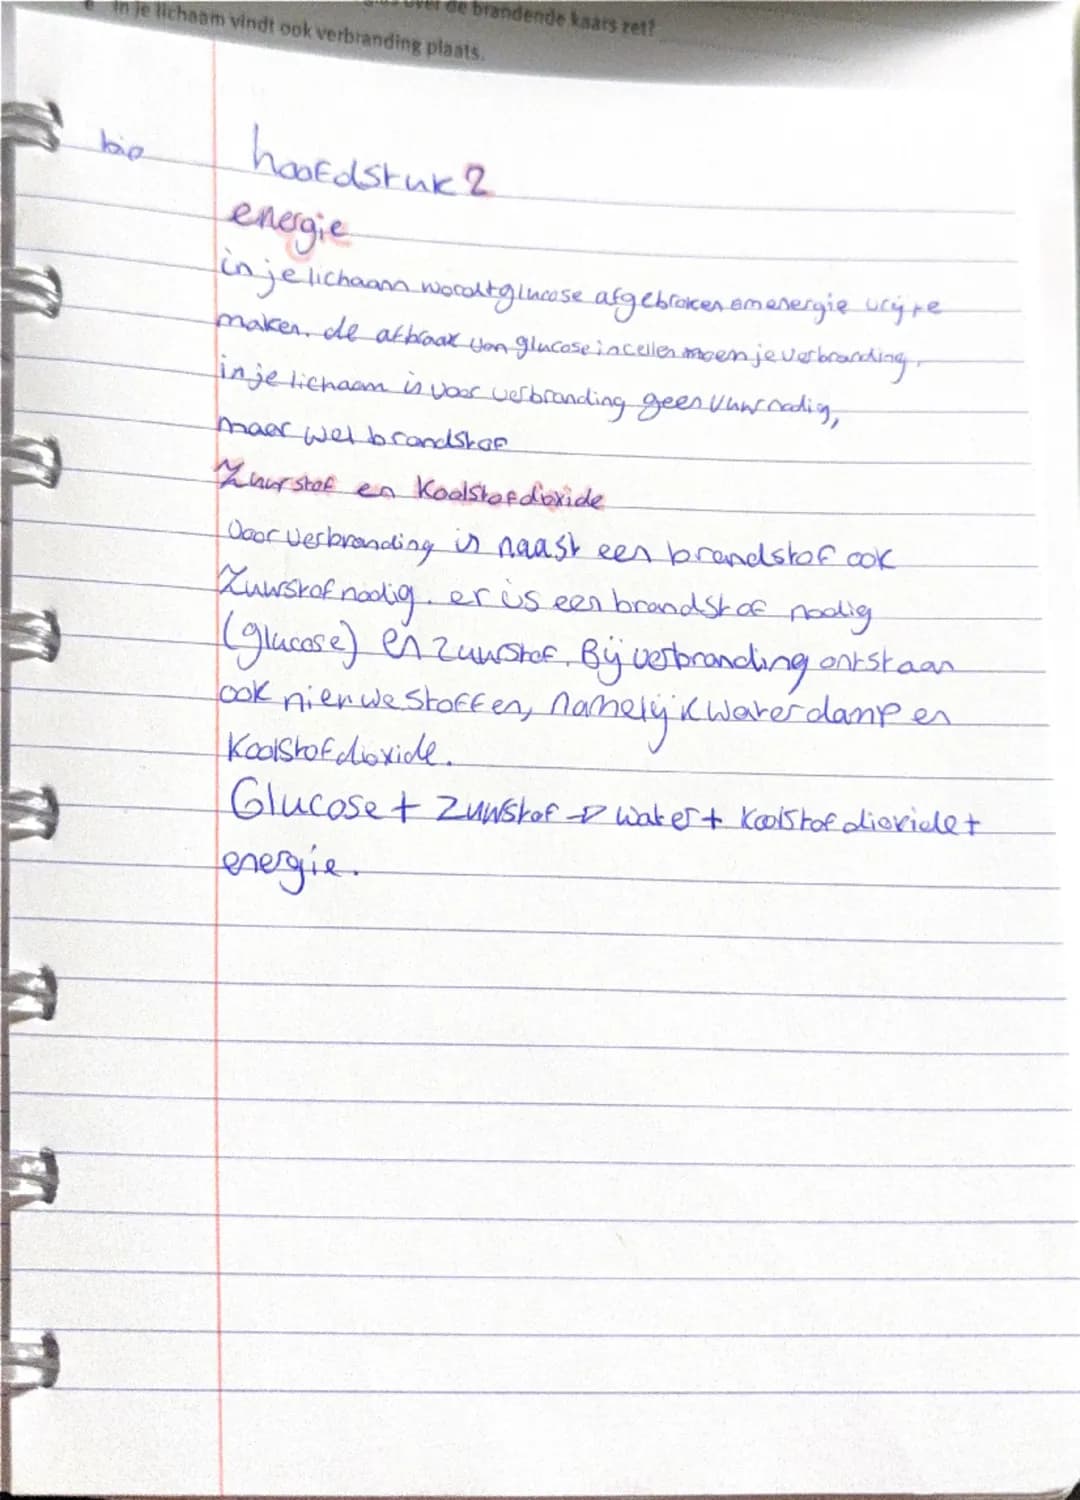 In je lichaam vindt ook verbranding plaats.
over de brandende kaars zet?
bio
hoofdstuk 2
energie
in je lichaam wordt glucose afgebroken om energie vrij te
maken. de afbraak van glucose in cellen noem je verbranding.
in je lichaam is voor verbranding geen vuur nodig,
maar wel brandstof
Zuurstof en Koolstofdioxide
Voor verbranding is naast een brandstof ook
Zuurstof nodig. er is een brandstof nodig
(glucose) en zuurstof. Bij verbranding ontstaan
ook nieuwe stoffen, namelijk waterdamp en
Koolstofdioxide.
Glucose + zuurstof → water + Koolstofdioxide +
energie.